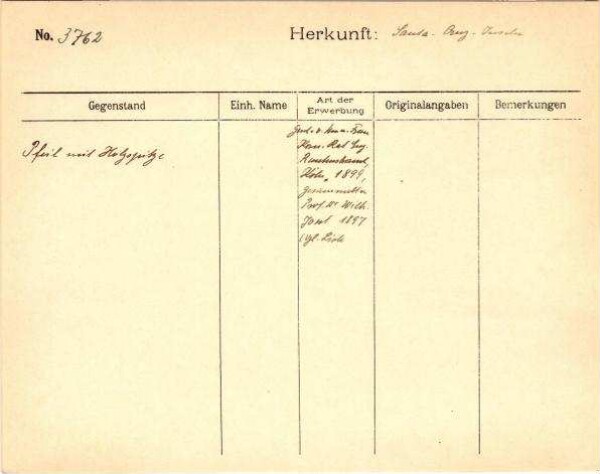 No. 3762
Herkunft: Santa-Cruz-Inseln
Gegenstand
Einh. Name
Art der Erwerbung
Originalangaben
Bemerkungen
Pfeil mit Holzspitze
Gesch. v. Frau
Kom. Rat Eug.
Rautenstrauch,
Köln, 1899,
gesammelt v.
Prof. Dr. Wilh.
Joest 1897
(vgl. Liste